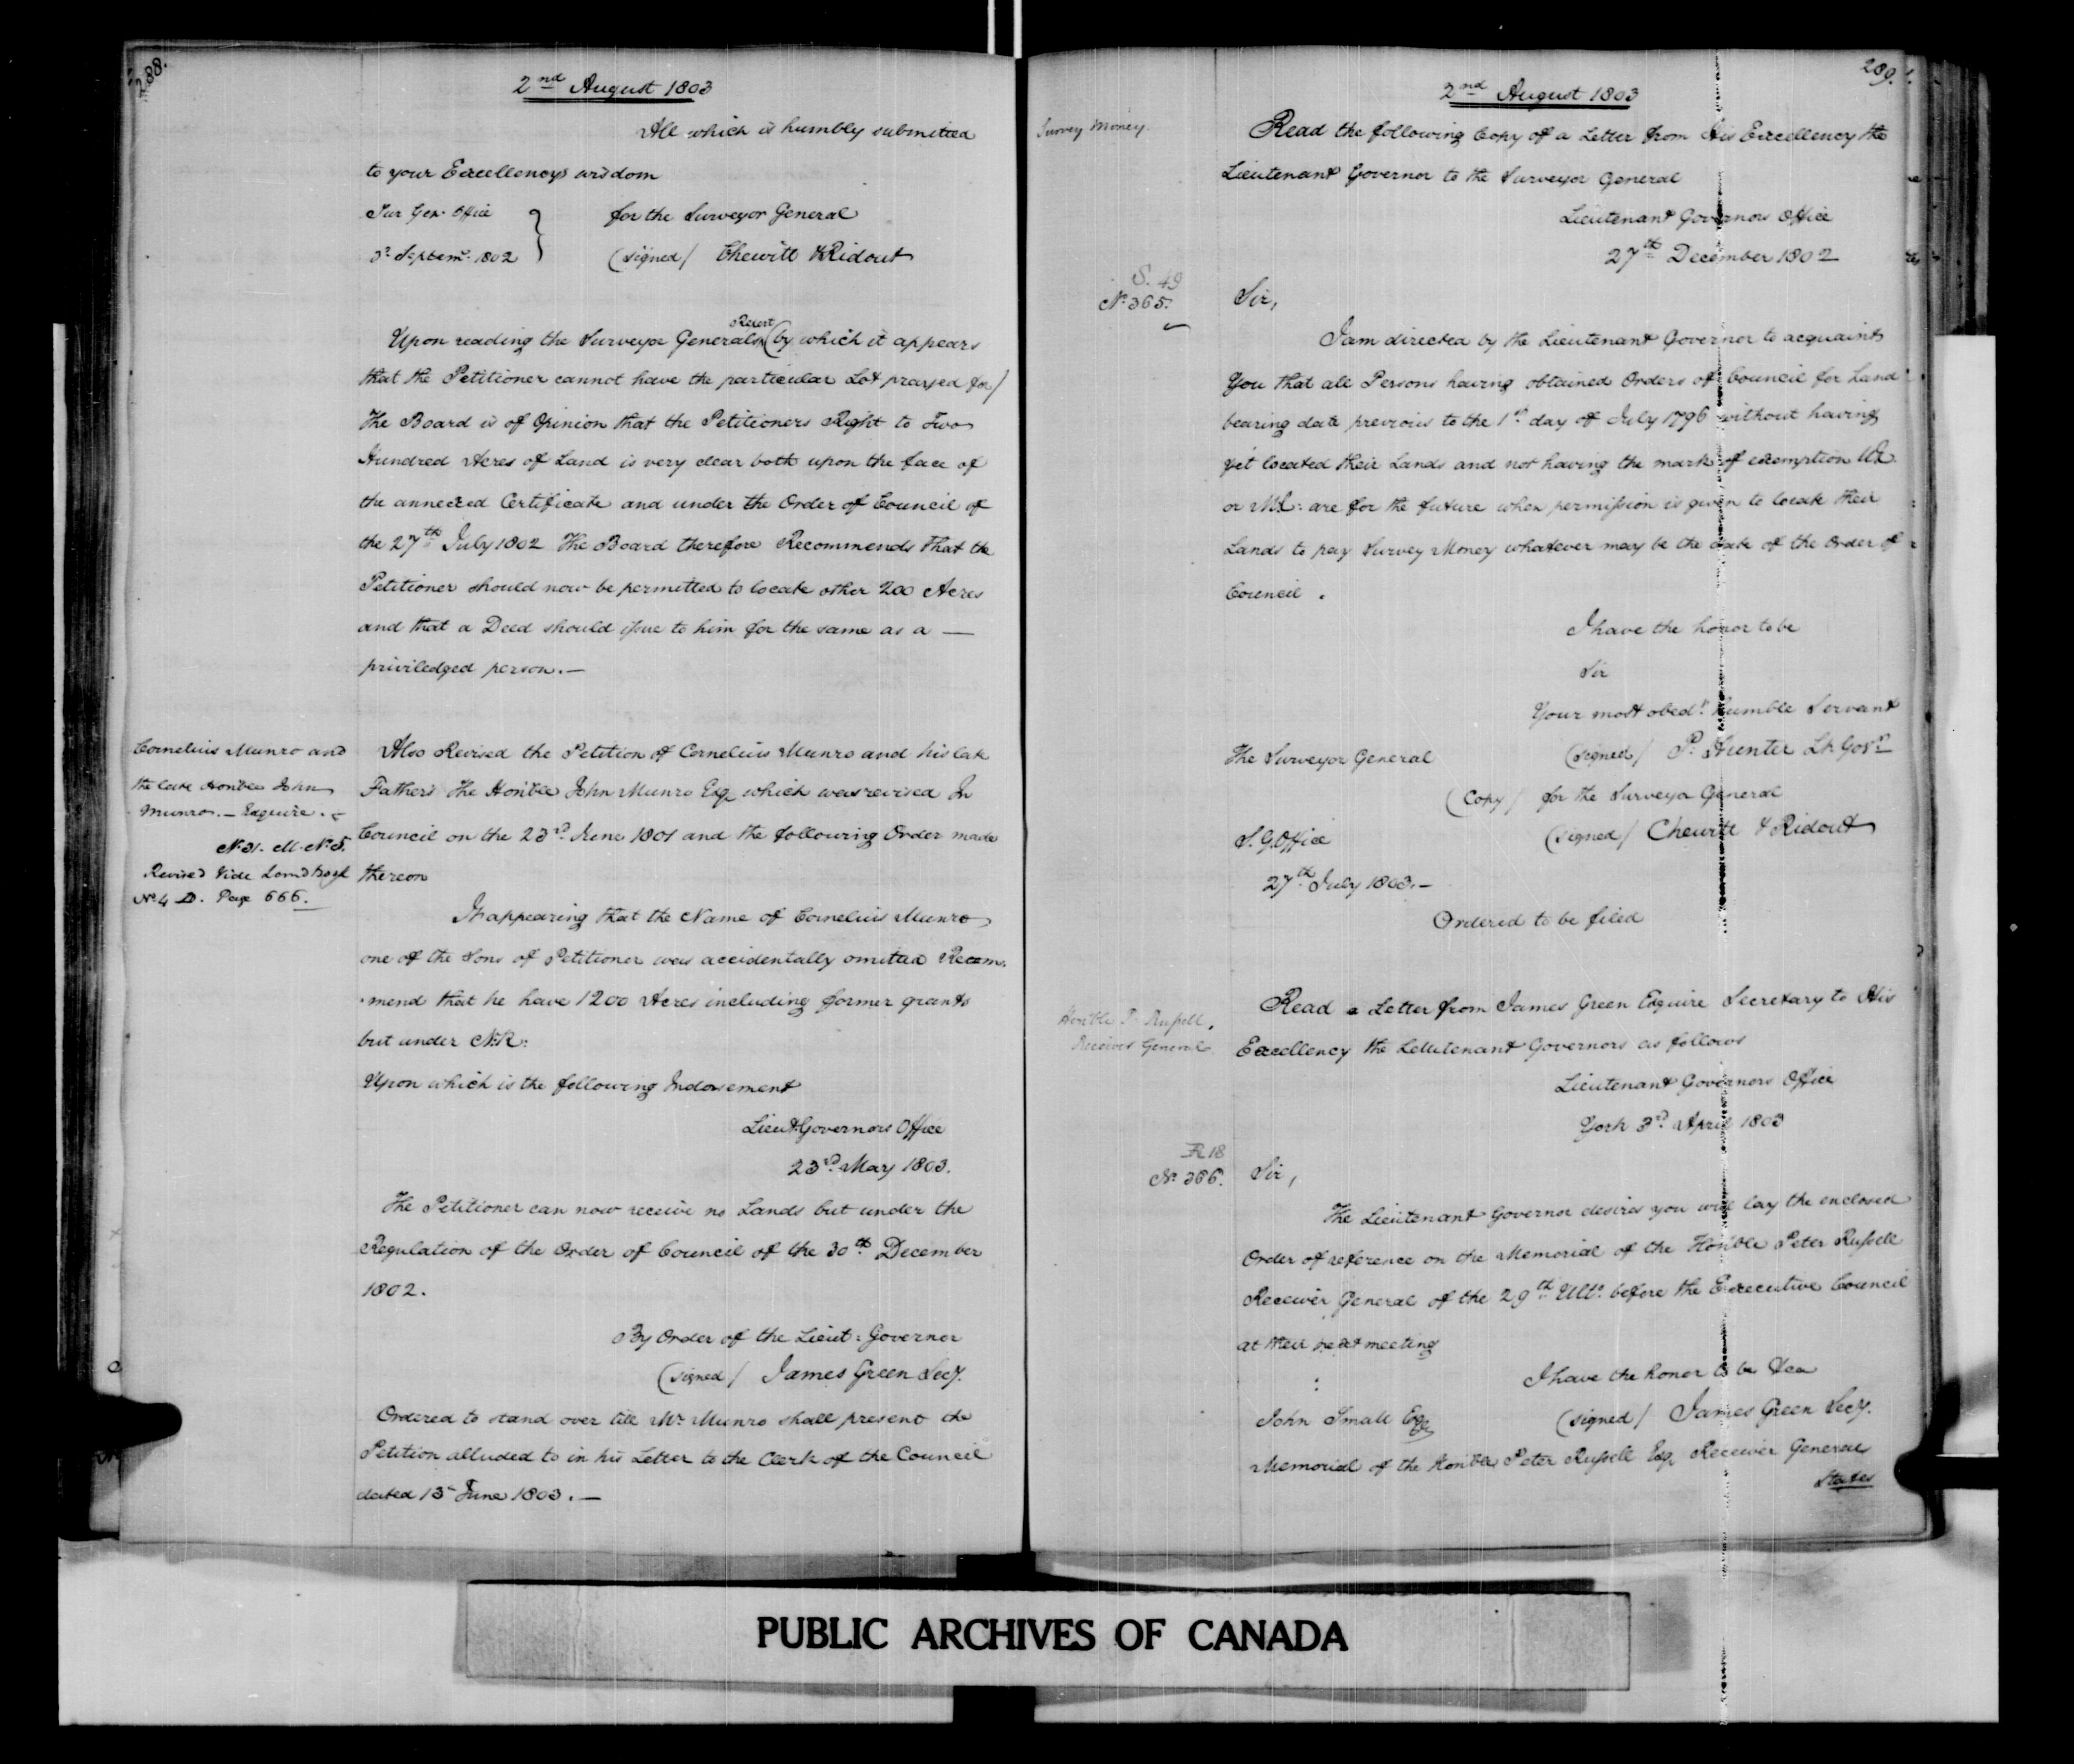 288.
2nd August 1803
All which is humbly submitted
to your Excellencys wisdom
Sur Gen. Office
3d Septemr. 1802
for the Surveyor General
(signed/ Chewitt & Ridout
Report
Upon reading the Surveyor Generals (by which it appears
that the Petitioner cannot have the particular Lot prayed for/
The Board is of Opinion that the Petitioners Right to Two
Hundred Acres of Land is very clear both upon the face of
the annexed Certificate and under the Order of Council of
the 27th July 1802 The Board therefore Recommends that the
Petitioner should now be permitted to locate other 200 Acres
and that a Deed should issue to him for the same as a —
priviledged person. —
Cornelius Munro and
the late Honble John
Munro. — Esquire.
No 31. M. No 5.
Revised Vide Land Book
No. 4 D. Page 666.
Also Revised the Petition of Cornelius Munro and his late
Father The Honble John Munro Esq which was revised In
Council on the 23d. June 1801 and the following Order made
thereon
It appearing that the Name of Cornelius Munro
one of the Sons of Petitioner was accidentally omitted Recom-
-mend that he have 1200 Acres including former grants
but under N.R:
Upon which is the following Indorsement
Lieut Governors Office
23d. May 1803.
The Petitioner can now receive no Lands but under the
Regulation of the Order of Council of the 30th. December
1802.
By Order of the Lieut: Governor
(signed/ James Green Secy.
Ordered to stand over till Mr. Munro shall present the
Petition alluded to in his Letter to the Clerk of the Council
dated 13 June 1803. —
289.
2nd August 1803
Survey Money.
Read the following Copy of a Letter from His Excellency the
Lieutenant Governor to the Surveyor General
Lieutenant Governors Office
27th December 1802
S. 49
No. 365.
Sir,
I am directed by the Lieutenant Governor to acquaint
You that all Persons having obtained Orders of Council for Land
bearing date previous to the 1st. day of July 1796 without having
yet located their Lands and not having the mark of exemption UE
or ML: are for the future when permission is given to locate their
Lands to pay Survey Money whatever may be the date of the Order of
Council.
I have the honor to be
Sir
Your most obedt. humble Servant
The Surveyor General
(signed/ P. Hunter Lt. Govr.
(Copy/ for the Surveyor General
S. G. Office
(signed/ Chewitt & Ridout
27th July 1803. —
Ordered to be filed
Honble P. Russell,
Receiver General
Read a Letter from James Green Esquire Secretary to His
Excellency the Leiutenant Governors as follows
Lieutenant Governors Office
York 3d. April 1803
R 18
No. 366.
Sir,
The Lieutenant Governor desires you will lay the enclosed
Order of reference on the Memorial of the Honble Peter Russell
Receiver General of the 29th. Ulto. before the Executive Council
at their next meeting
I have the honor to be &ca
John Small Esq
(signed/ James Green Secy.
Memorial of the Honble Peter Russell Esq Receiver General
States
PUBLIC ARCHIVES OF CANADA